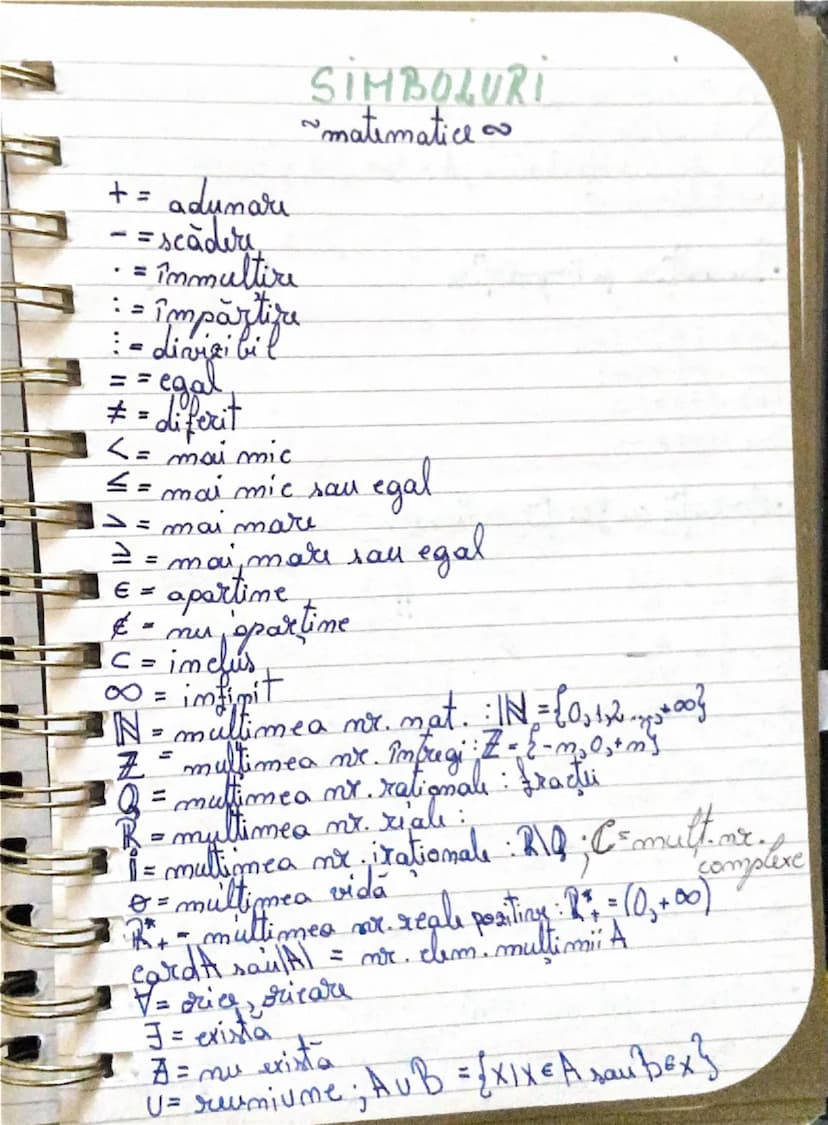 SIMBOLURI
~matematice∞
+ = adunare
- = scădere
· = înmulțire
: = împărțire
⋮ = divizibil
= = egal
≠ = diferit
< = mai mic
≤ = mai mic sau egal
> = mai mare
≥ = mai mare sau egal
∈ = aparține
∉ = nu aparține
⊂ = inclus
∞ = infinit
ℕ = mulțimea nr. nat. : ℕ = {0,1,2...,+∞}
ℤ = mulțimea nr. întregi : ℤ = {-n,0,+n}
Q = mulțimea nr. raționale : fracții
ℝ = mulțimea nr. reale :
I = mulțimea nr. iraționale : R\Q ; C = mulț. nr. complexe
ø = mulțimea vidă
R*₊ = mulțimea nr. reale pozitive : R*₊ = (0,+∞)
cardA sau |A| = nr. elem. mulțimii A
∀ = orice, oricare
∃ = există
∄ = nu există
∪ = reuniune ; A∪B = {x|x∈A sau B∈x}